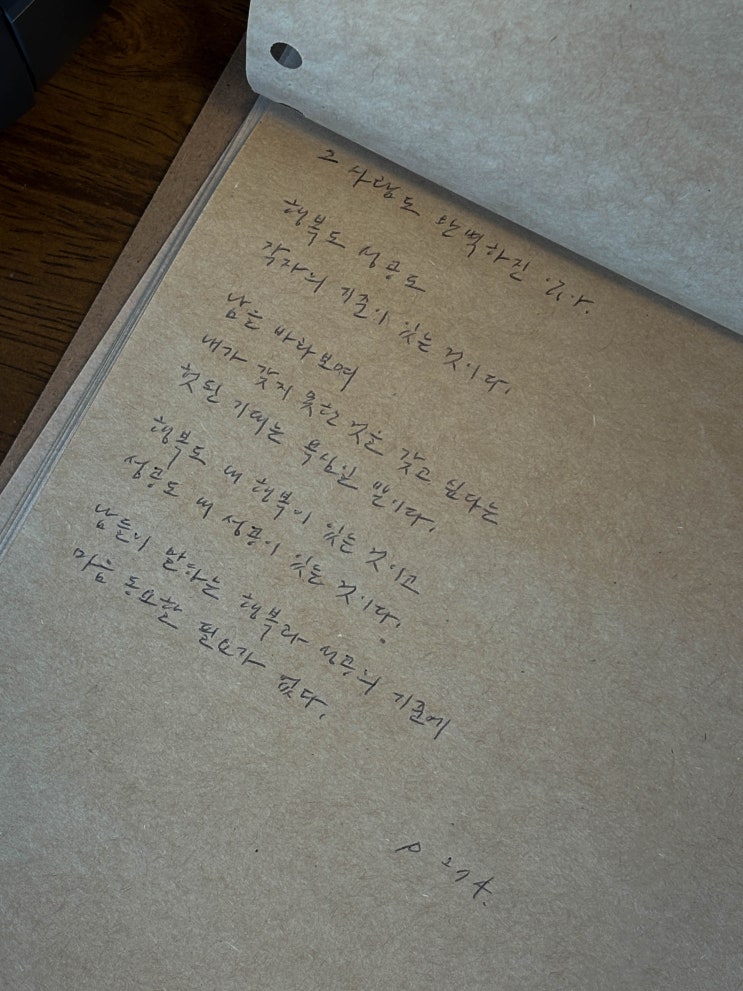 그 사람도 완벽하진 않다.
행복도 성공도
각자의 기준이 있는 것이다.
남을 바라보며
내가 갖지 못한 것을 갖고 싶다는
헛된 기대는 욕심일 뿐이다.
행복도 내 행복이 있는 것이고
성공도 내 성공이 있는 것이다.
남들이 말하는 행복과 성공의 기준에
마음 동요할 필요가 없다.
p 274.